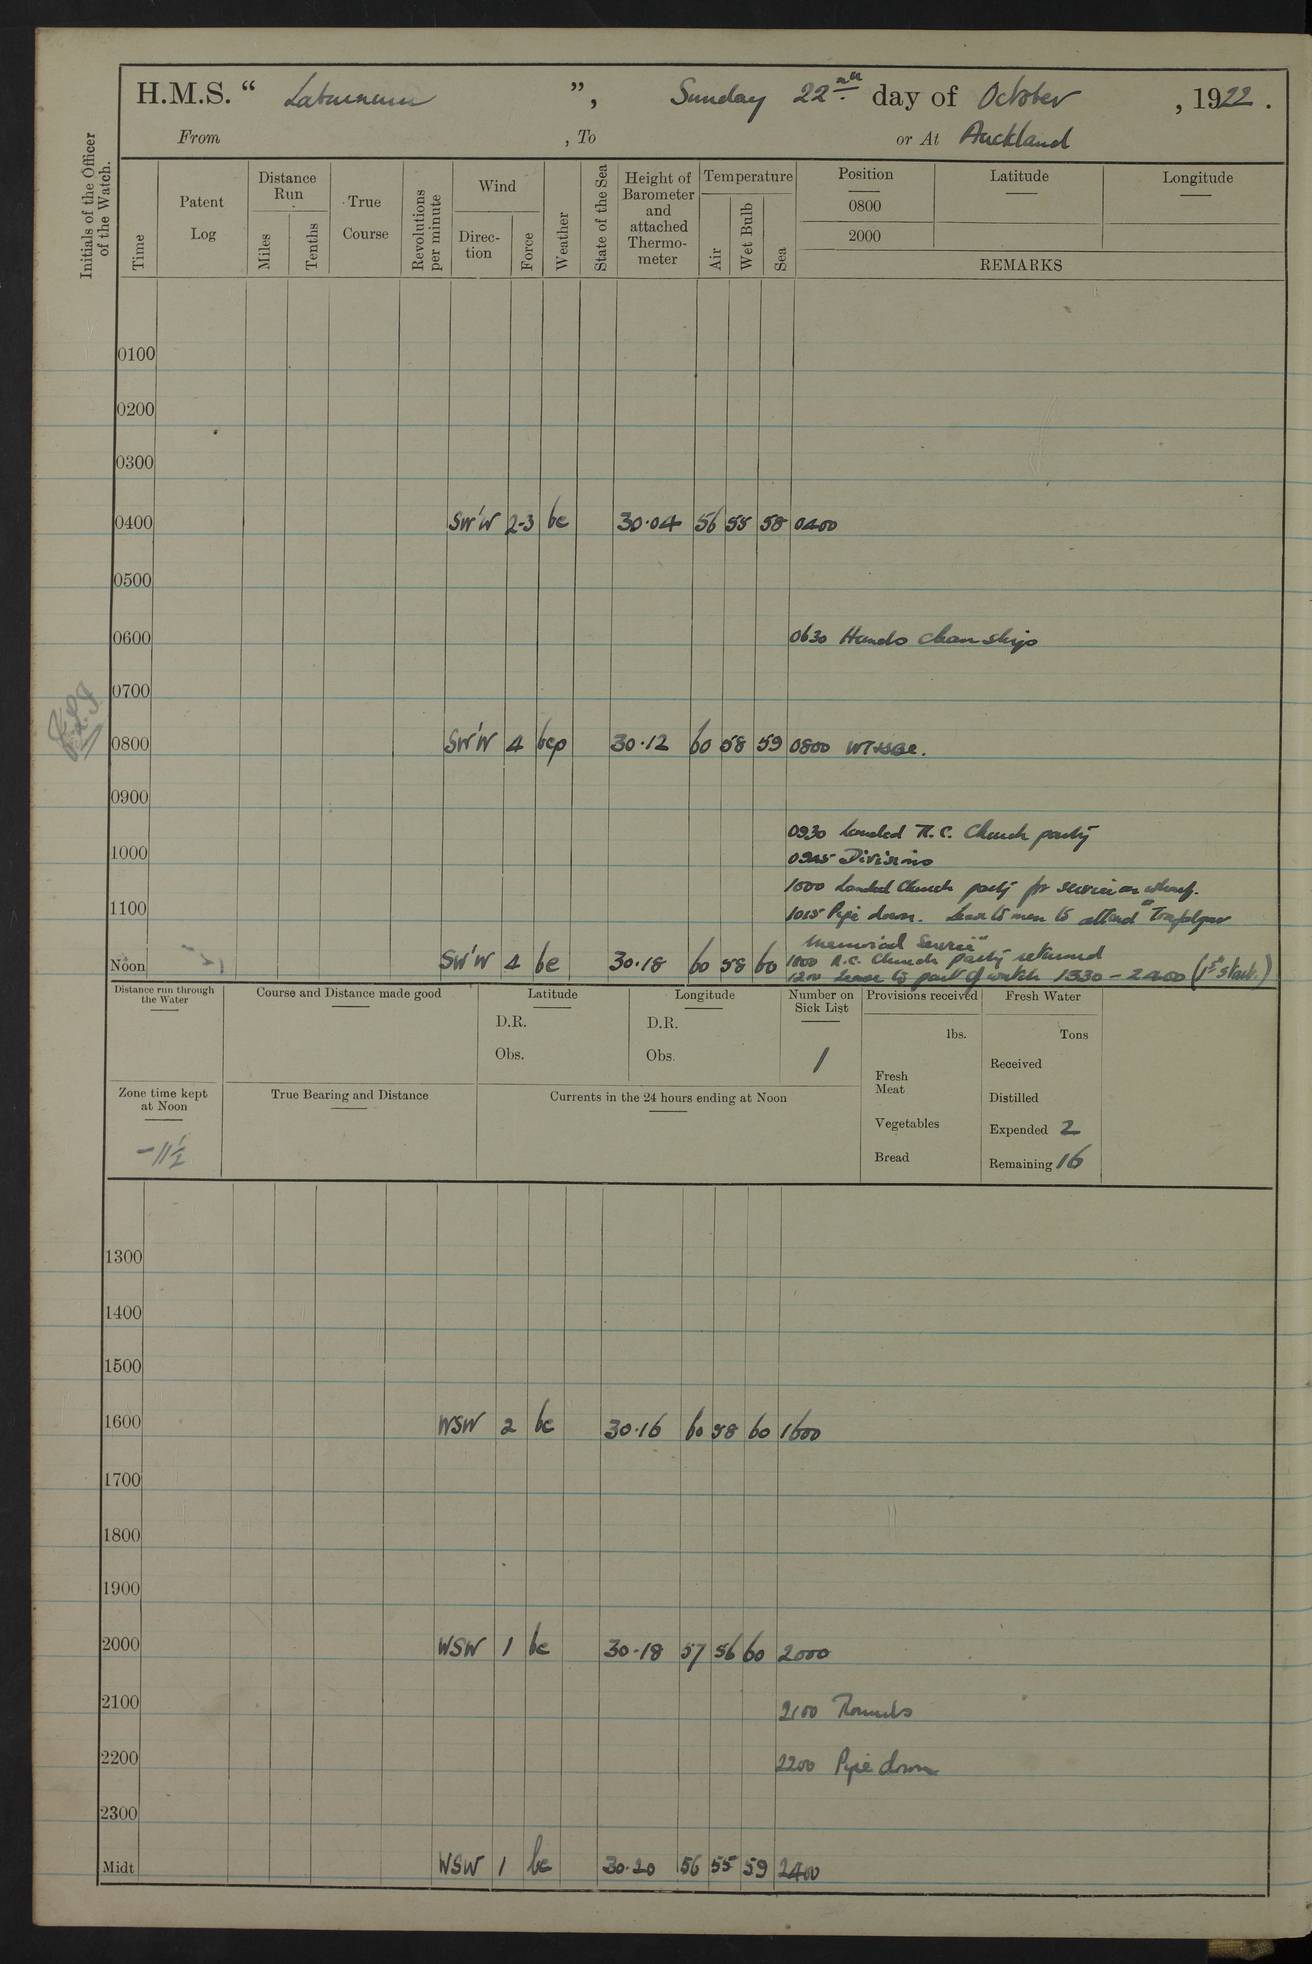 H.M.S. “ Laburnum ”, Sunday 22nd day of October, 1922.
From , To or At Auckland
Initials of the Officer of the Watch.
Time
Patent Log
Distance Run
Miles
Tenths
True Course
Revolutions per minute
Wind
Direction
Force
Weather
State of the Sea
Height of Barometer and attached Thermometer
Temperature
Air
Wet Bulb
Sea
Position Latitude Longitude
0800
2000
REMARKS
0100
0200
0300
0400 SW'W 2-3 bc 30.04 56 55 58 0400
0500
0600 0630 Hands clean ship
0700
0800 SW'W 4 bcp 30.12 60 58 59 0800
0900
0930 Landed R.C. Church party
1000 0945 Divisions
1000 Landed Church party for service on wharf.
1100 1015 Pipe down. Leave to men to attend "Trafalgar
Memorial Service"
Noon SW'W 4 bc 30.18 60 58 60 R.C. Church party returned
1200 Leave to part of watch 1330 - 2400 (1st part.)
Distance run through the Water
Course and Distance made good
Latitude
D.R.
Obs.
Longitude
D.R.
Obs.
Number on Sick List
1
Provisions received
lbs.
Fresh Meat
Vegetables
Bread
Fresh Water
Tons
Received
Distilled
Expended 2
Remaining 16
Zone time kept at Noon
-11½
True Bearing and Distance
Currents in the 24 hours ending at Noon
1300
1400
1500
1600 WSW 2 bc 30.16 60 58 60 1600
1700
1800
1900
2000 WSW 1 bc 30.18 57 56 60 2000
2100 2100 Rounds
2200 2200 Pipe down
2300
Midt WSW 1 bc 30.20 56 55 59 2400